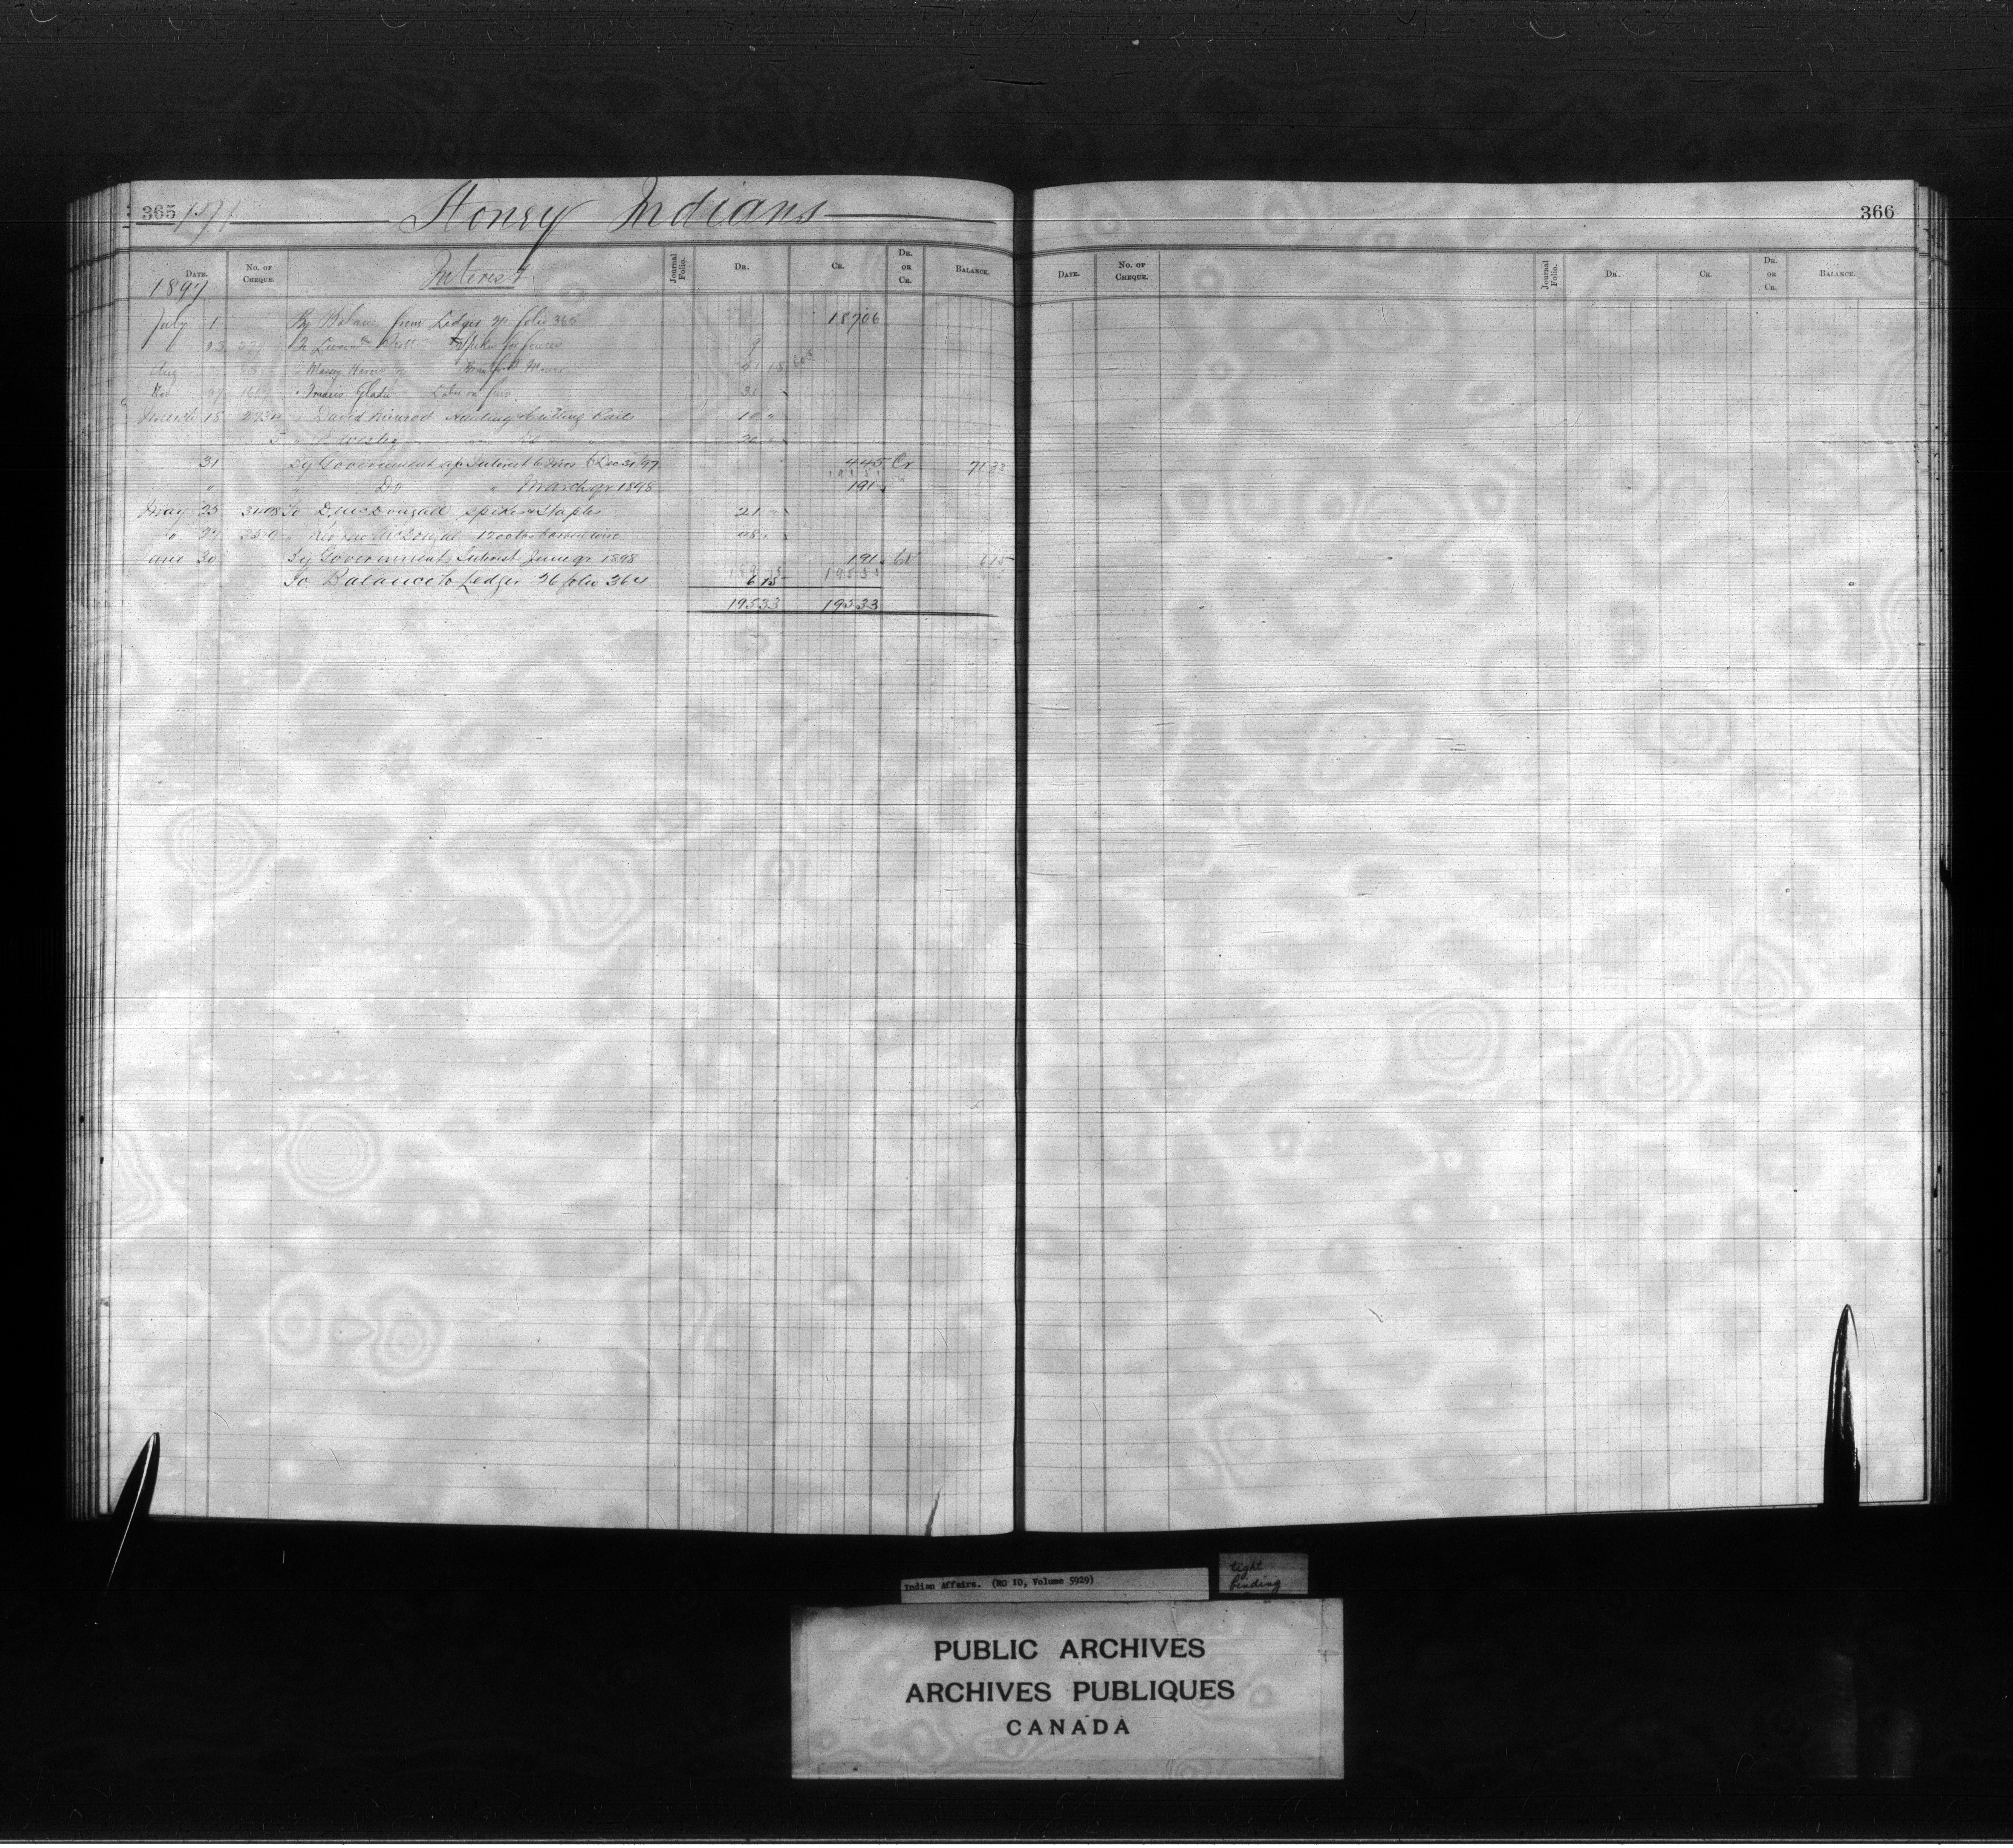 365 171 Stoney Indians
DATE. No. OF CHEQUE. Interest Journal Folio. DR. CR. DR. OR CR. BALANCE.
1897
July 1 By Balance from Ledger folio 365 187 06
23 To Spikes for fences 9
Aug 41 18
Nov 27 Francis Labor on 30
March 18 David Nimrod Hauling & Cutting Rails 10 "
Wesley 20 "
31 By Government a/c Interest to Dec 31/97 4 45 Cr 71 33
" " Do " March qr 1898 1 91
May 25 To D. McDougall Spikes & Staples 21 "
" 27 McDougal 1200 lbs barbed wire 48 "
June 30 By Government Interest June qr 1898 1 91 Cr 6 15
To Balance to Ledger 26 folio 364 6 15
195 33 195 33
366
DATE. No. OF CHEQUE. Journal Folio. DR. CR. DR. OR CR. BALANCE.
Indian Affairs. (RG 10, Volume 5929)
tight binding
PUBLIC ARCHIVES
ARCHIVES PUBLIQUES
CANADA